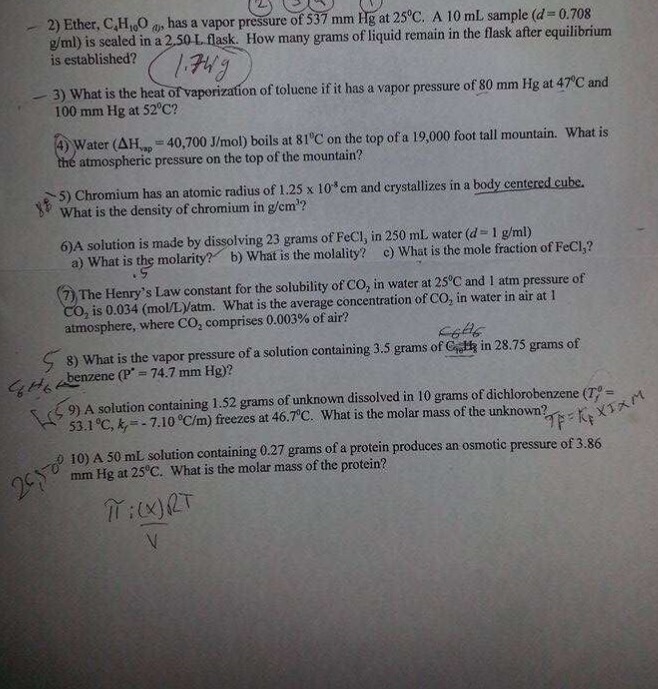 2) Ether, C₄H₁₀O (l), has a vapor pressure of 537 mm Hg at 25⁰C. A 10 mL sample (d = 0.708
g/ml) is sealed in a 2.50 L flask. How many grams of liquid remain in the flask after equilibrium
is established?
1.74g
3) What is the heat of vaporization of toluene if it has a vapor pressure of 80 mm Hg at 47⁰C and
100 mm Hg at 52⁰C?
4) Water (ΔHvap = 40,700 J/mol) boils at 81⁰C on the top of a 19,000 foot tall mountain. What is
the atmospheric pressure on the top of the mountain?
5) Chromium has an atomic radius of 1.25 x 10⁻⁸ cm and crystallizes in a body centered cube.
What is the density of chromium in g/cm³?
6)A solution is made by dissolving 23 grams of FeCl₃ in 250 mL water (d = 1 g/ml)
a) What is the molarity? b) What is the molality? c) What is the mole fraction of FeCl₃?
.5
7) The Henry's Law constant for the solubility of CO₂ in water at 25⁰C and 1 atm pressure of
CO₂ is 0.034 (mol/L)/atm. What is the average concentration of CO₂ in water in air at 1
atmosphere, where CO₂ comprises 0.003% of air?
C6H6
8) What is the vapor pressure of a solution containing 3.5 grams of C₁₀H₈ in 28.75 grams of
benzene (P* = 74.7 mm Hg)?
C6H6
9) A solution containing 1.52 grams of unknown dissolved in 10 grams of dichlorobenzene (Tf⁰ =
53.1⁰C, kf = - 7.10 ⁰C/m) freezes at 46.7⁰C. What is the molar mass of the unknown?
TF = KF x I x M
10) A 50 mL solution containing 0.27 grams of a protein produces an osmotic pressure of 3.86
mm Hg at 25⁰C. What is the molar mass of the protein?
π = (x)RT
V